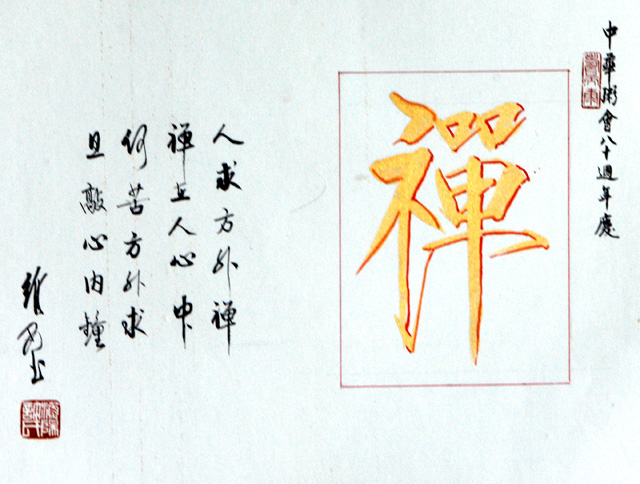 中華衛會八十週年慶
禪
人求方外禪
禅在人心中
何苦方外求
且敲心内鐘